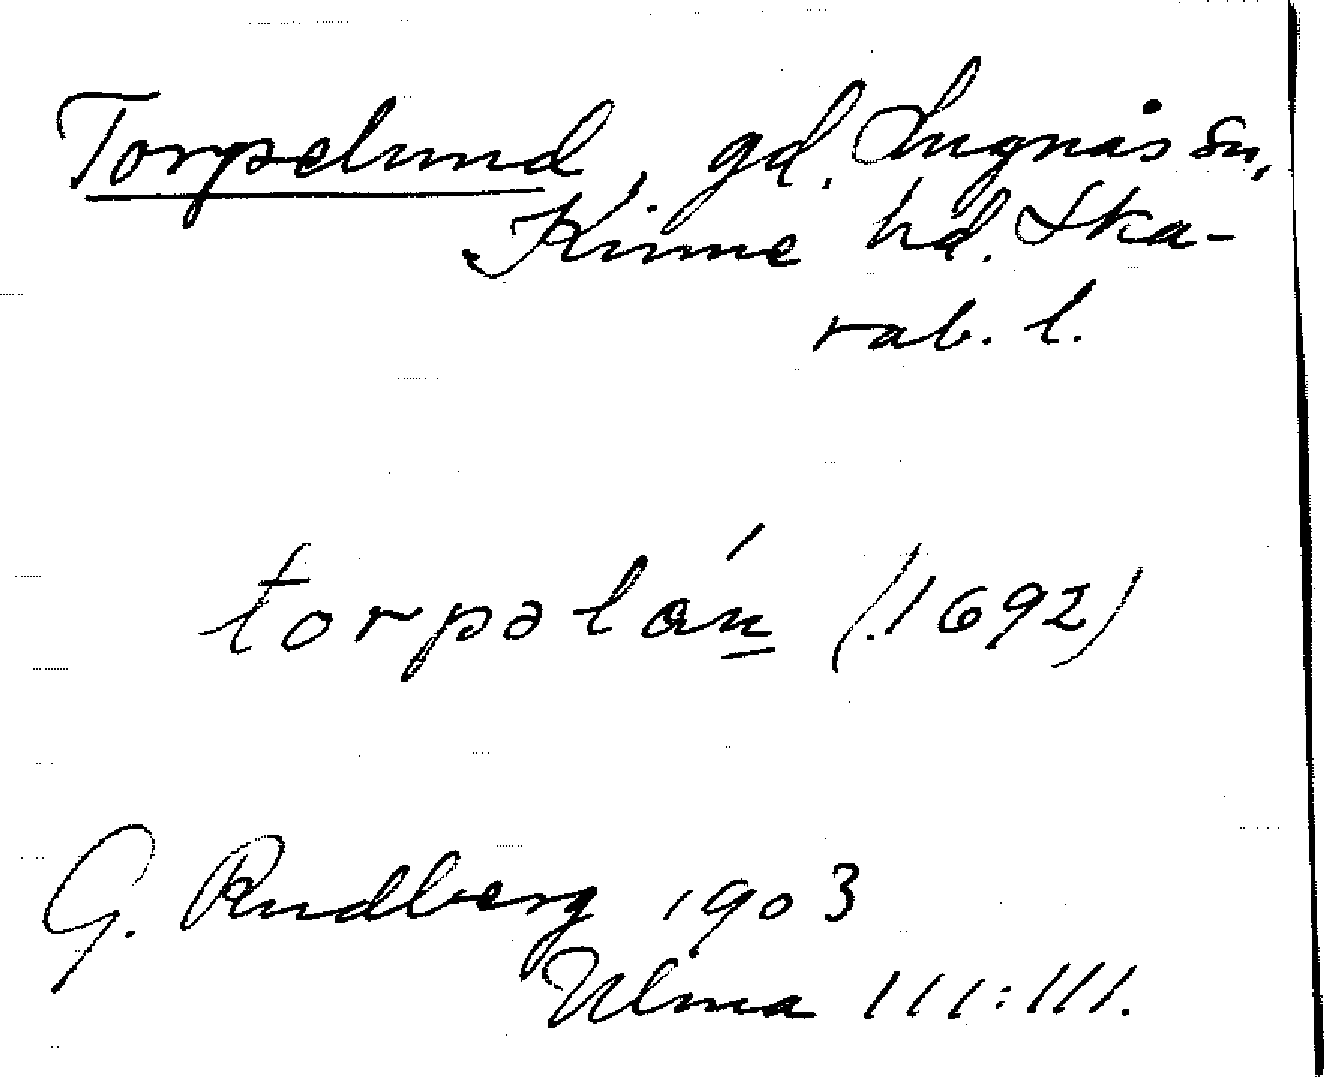 Torpelund, gd. Lugnås sn,
Kinne hd. Ska-
rab. l.
torpəlán (1692)
G. Rudberg 1903
Ulma 111:111.